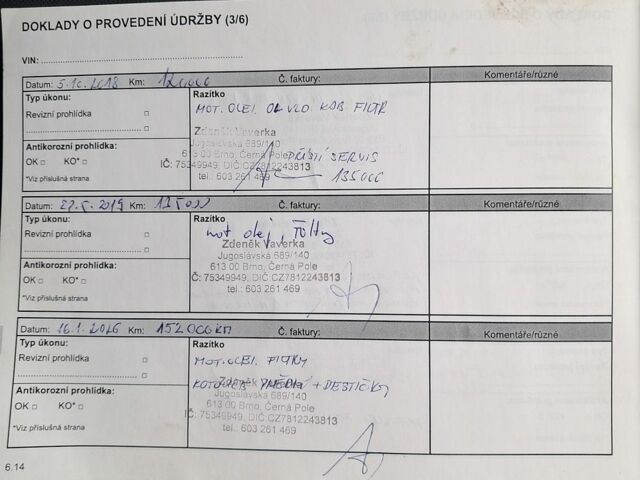 DOKLADY O PROVEDENÍ ÚDRŽBY (3/6)
VIN:
Datum: 5.10.2018 Km: 120000 Č. faktury: Komentáře/různé
Typ úkonu: Razítko
Revizní prohlídka MOT. OLEJ. KAB FILTR
Antikorozní prohlídka: Zdeněk Vaverka
Jugoslávská 689/140
OK KO* 613 00 Brno, Černá Pole PŘÍŠTÍ SERVIS
IČ: 75349949, DIČ:CZ7812243813
*Viz příslušná strana tel.: 603 261 469 135000
Datum: 27.5.2019 Km: 135000 Č. faktury: Komentáře/různé
Typ úkonu: Razítko
Revizní prohlídka mot olej, filtry
Zdeněk Vaverka
Antikorozní prohlídka: Jugoslávská 689/140
613 00 Brno, Černá Pole
OK KO* Č: 75349949, DIČ:CZ7812243813
*Viz příslušná strana tel.: 603 261 469
Datum: 16.1. Km: 152000KM Č. faktury: Komentáře/různé
Typ úkonu: Razítko
Revizní prohlídka MOT.OLEJ. FILTRY
Zdeněk Vaverka + DESTIČKY
Antikorozní prohlídka: Jugoslávská 689/140
OK KO* 613 00 Brno, Černá Pole
75349949, DIČ:CZ7812243813
*Viz příslušná strana tel.: 603 261 469
6.14